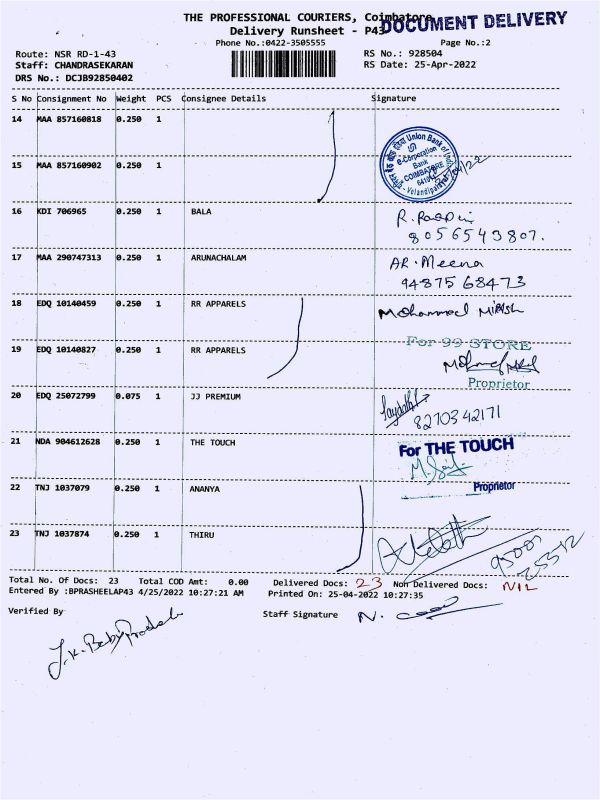 THE PROFESSIONAL COURIERS, Coimbatore
DOCUMENT DELIVERY
Delivery Runsheet - P43
Phone No.:0422-3505555
Page No.:2
Route: NSR RD-1-43
RS No.: 928504
Staff: CHANDRASEKARAN
RS Date: 25-Apr-2022
DRS No.: DCJB92850402
S No Consignment No Weight PCS Consignee Details Signature
14 MAA 857160818 0.250 1
Union Bank of
e-Corporation
Bank
COIMBATORE
15 MAA 857160902 0.250 1
16 KDI 706965 0.250 1 BALA
8056543807.
17 MAA 290747313 0.250 1 ARUNACHALAM AR. Meena
94875 68473
18 EDQ 10140459 0.250 1 RR APPARELS Mohammed
For 99 STORE
19 EDQ 10140827 0.250 1 RR APPARELS
Proprietor
20 EDQ 25072799 0.075 1 JJ PREMIUM
8270342171
21 NDA 904612628 0.250 1 THE TOUCH For THE TOUCH
Proprietor
22 TNJ 1037079 0.250 1 ANANYA
23 TNJ 1037874 0.250 1 THIRU
95001
25312
Total No. Of Docs: 23 Total COD Amt: 0.00 Delivered Docs: 23 Non Delivered Docs: NIL
Entered By :BPRASHEELAP43 4/25/2022 10:27:21 AM Printed On: 25-04-2022 10:27:35
Verified By
Staff Signature